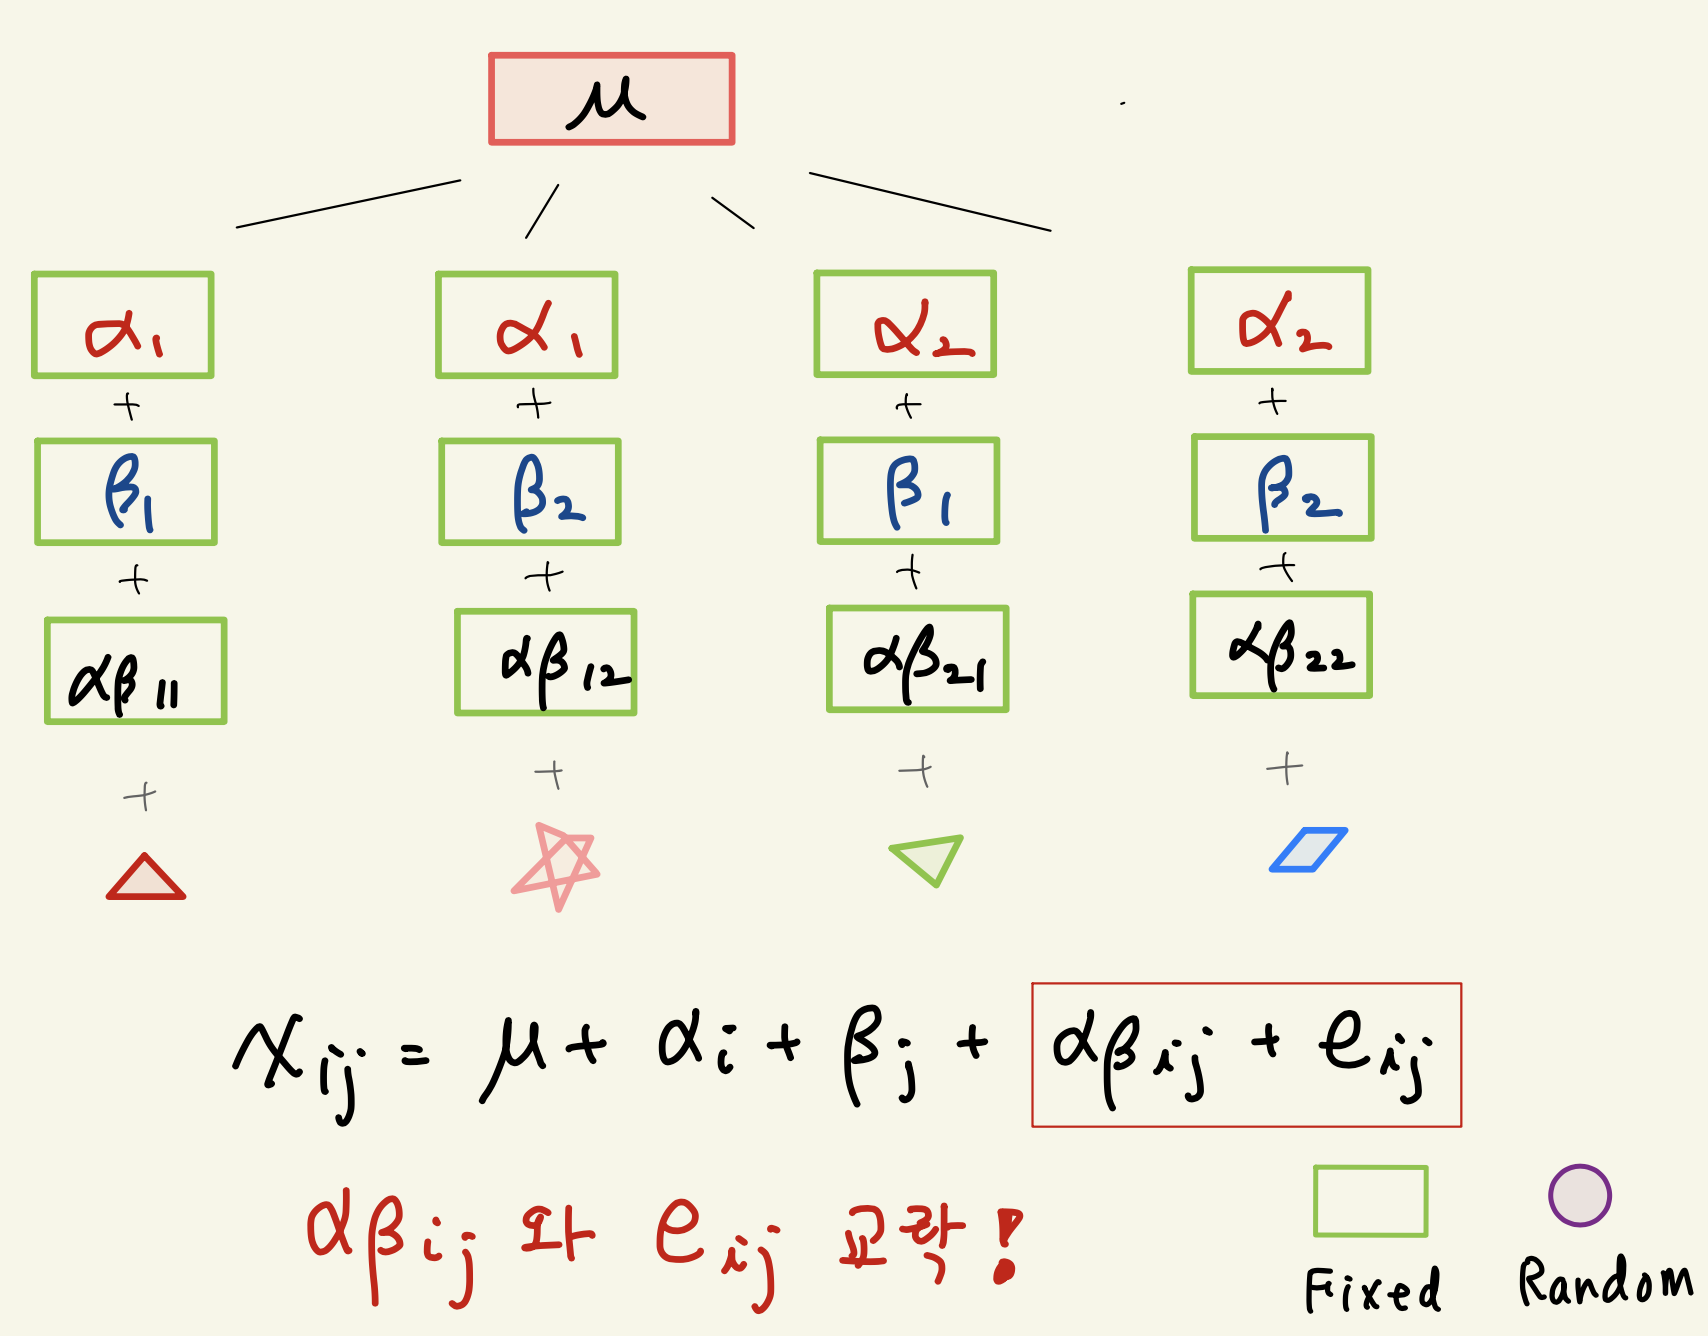 μ
α₁ α₁ α₂ α₂
+ + + +
β₁ β₂ β₁ β₂
+ + + +
αβ₁₁ αβ₁₂ αβ₂₁ αβ₂₂
+ + + +
xᵢⱼ = μ + αᵢ + βⱼ + αβᵢⱼ + eᵢⱼ
αβᵢⱼ 와 eᵢⱼ 교락!
Fixed Random